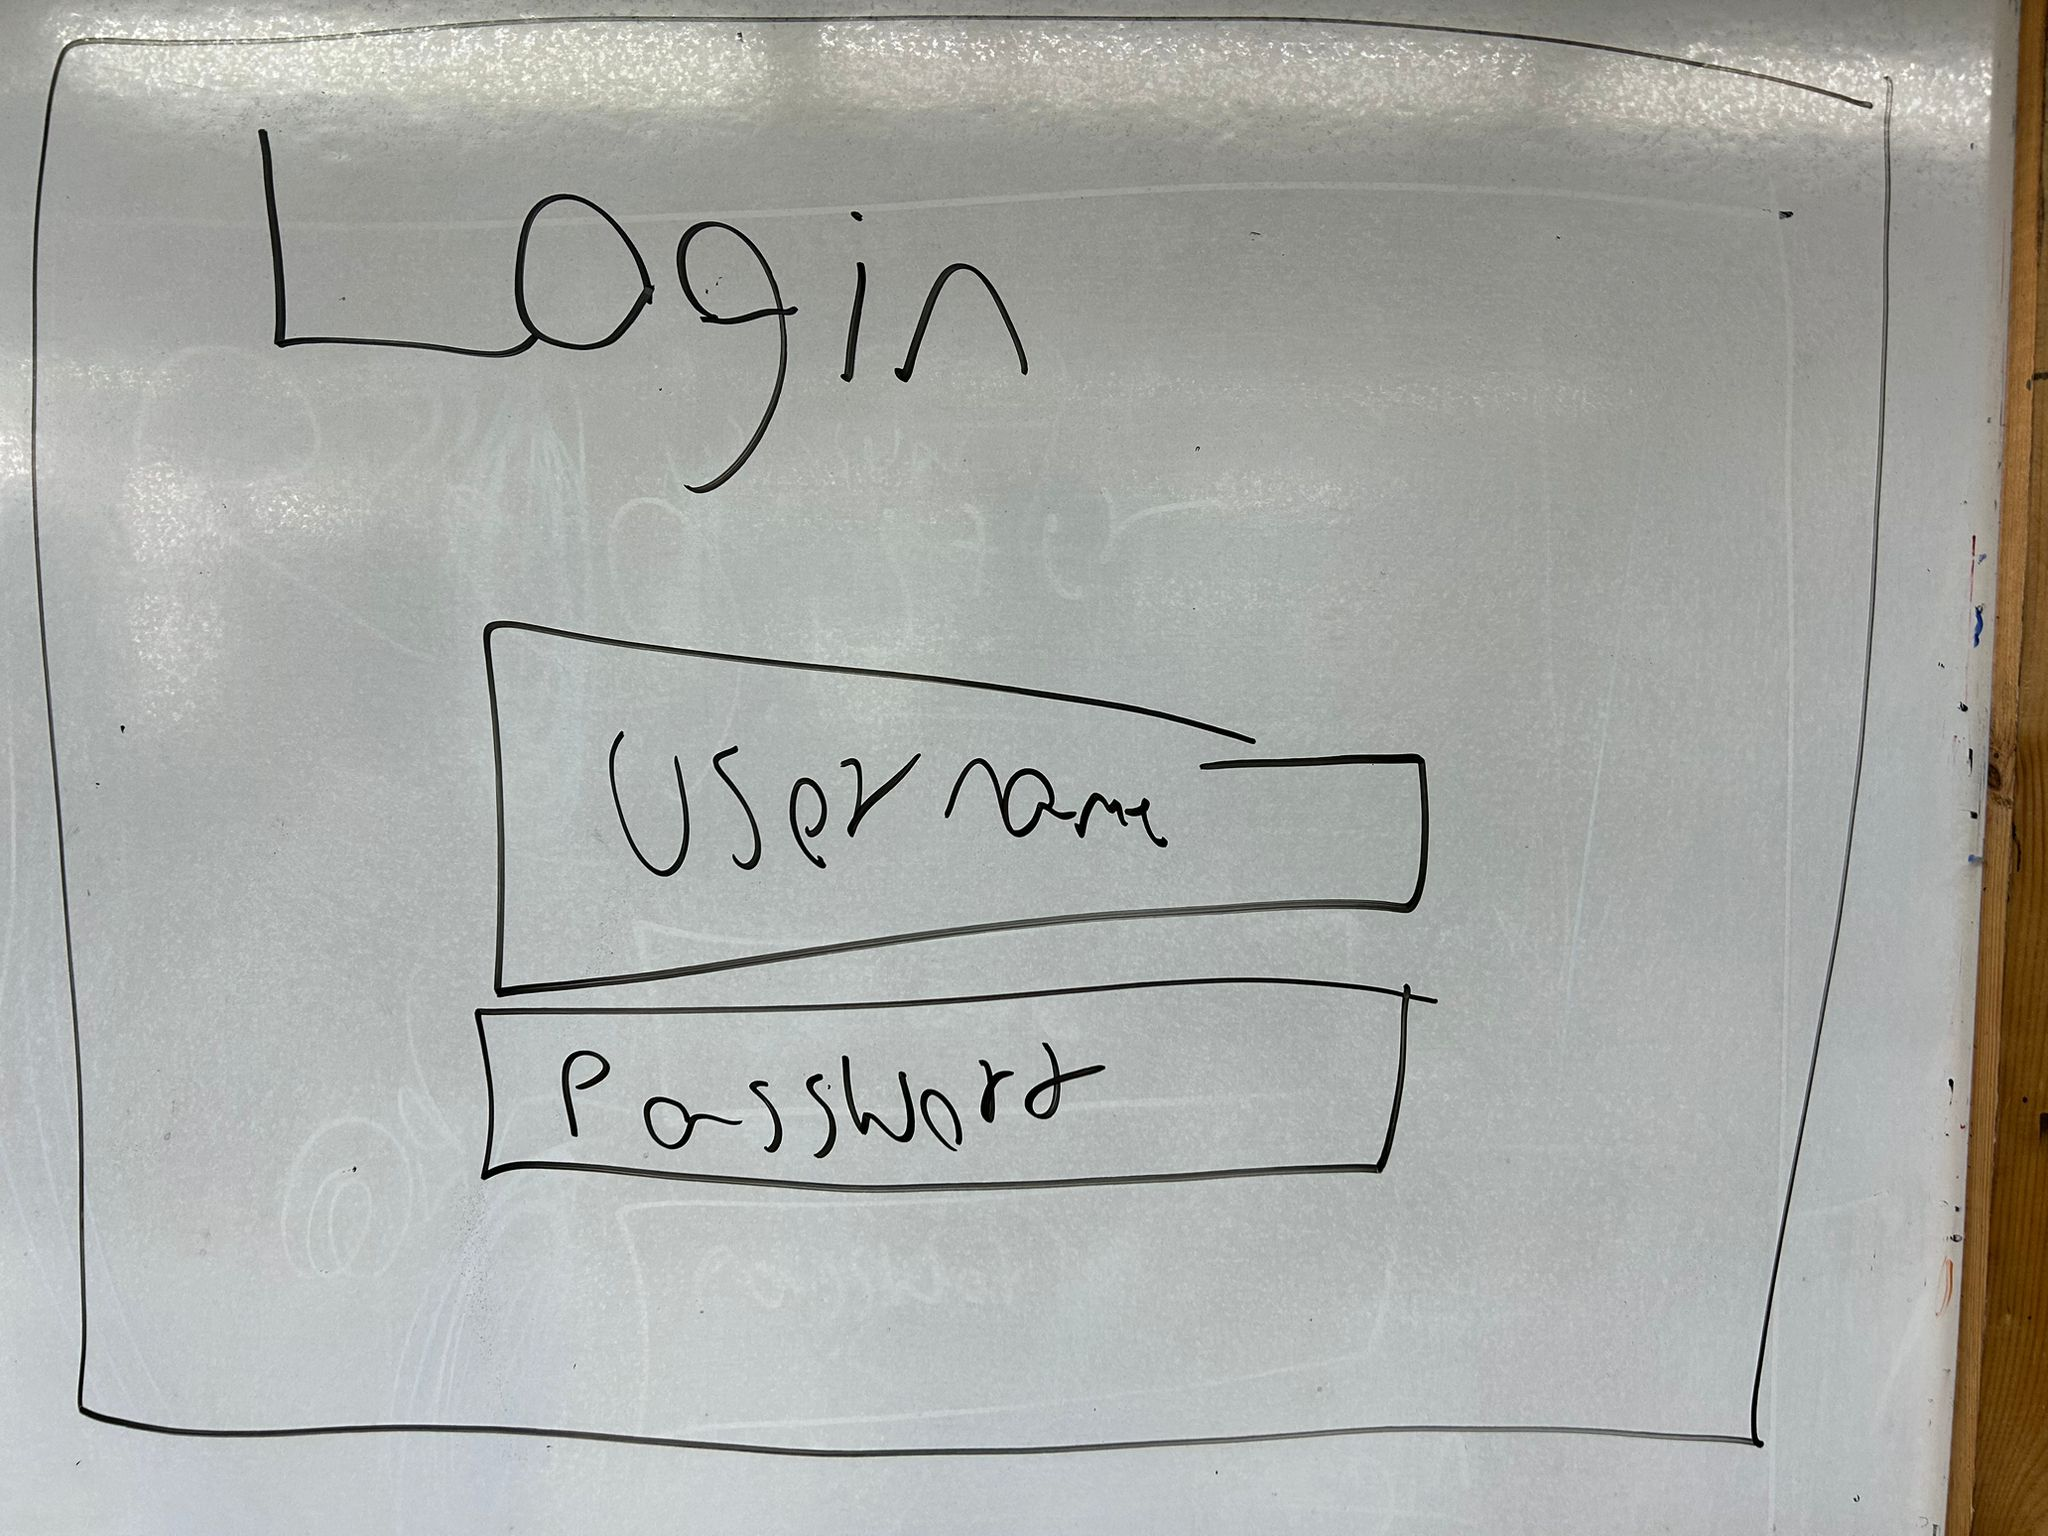 Login
Username
Password